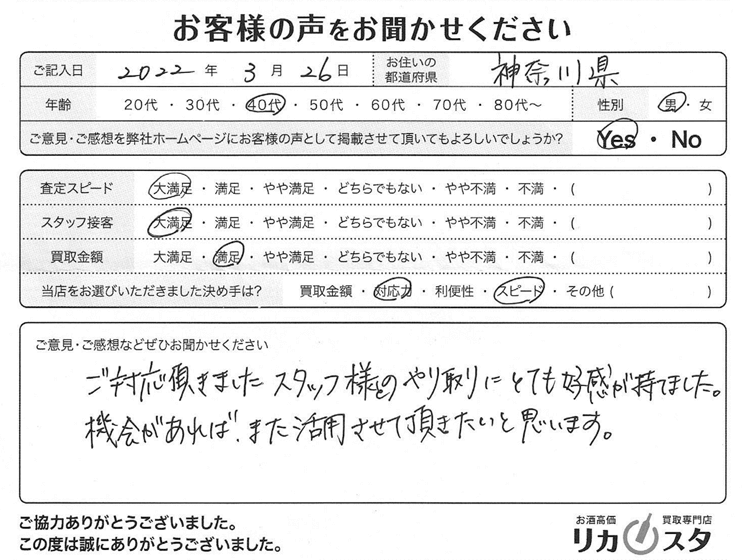 お客様の声をお聞かせください
ご記入日 2022 年 3 月 26 日 お住いの都道府県 神奈川県
年齢 20代 ・ 30代 ・ 40代 ・ 50代 ・ 60代 ・ 70代 ・ 80代〜 性別 男 ・ 女
ご意見・ご感想を弊社ホームページにお客様の声として掲載させて頂いてもよろしいでしょうか? Yes ・ No
査定スピード 大満足 ・ 満足 ・ やや満足 ・ どちらでもない ・ やや不満 ・ 不満 ・ ( )
スタッフ接客 大満足 ・ 満足 ・ やや満足 ・ どちらでもない ・ やや不満 ・ 不満 ・ ( )
買取金額 大満足 ・ 満足 ・ やや満足 ・ どちらでもない ・ やや不満 ・ 不満 ・ ( )
当店をお選びいただきました決め手は? 買取金額 ・ 対応力 ・ 利便性 ・ スピード ・ その他 ( )
ご意見・ご感想などぜひお聞かせください
ご対応頂きましたスタッフ様とのやり取りにとても好感が持てました。
機会があれば、また活用させて頂きたいと思います。
ご協力ありがとうございました。
この度は誠にありがとうございました。
お酒高価 買取専門店
リカスタ